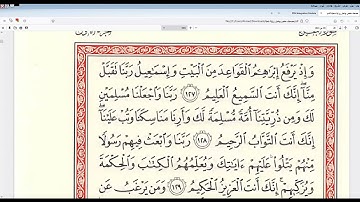 وَإِذْ يَرْفَعُ إِبْرَٰهِـۧمُ ٱلْقَوَاعِدَ مِنَ ٱلْبَيْتِ وَإِسْمَـٰعِيلُ رَبَّنَا تَقَبَّلْ
مِنَّآ إِنَّكَ أَنتَ ٱلسَّمِيعُ ٱلْعَلِيمُ ١٢٧ رَبَّنَا وَٱجْعَلْنَا مُسْلِمَيْنِ
لَكَ وَمِن ذُرِّيَّتِنَآ أُمَّةً مُّسْلِمَةً لَّكَ وَأَرِنَا مَنَاسِكَنَا وَتُبْ عَلَيْنَآ
إِنَّكَ أَنتَ ٱلتَّوَّابُ ٱلرَّحِيمُ ١٢٨ رَبَّنَا وَٱبْعَثْ فِيهِمْ رَسُولًا
مِّنْهُمْ يَتْلُوا۟ عَلَيْهِمْ ءَايَـٰتِكَ وَيُعَلِّمُهُمُ ٱلْكِتَـٰبَ وَٱلْحِكْمَةَ
وَيُزَكِّيهِمْ إِنَّكَ أَنتَ ٱلْعَزِيزُ ٱلْحَكِيمُ ١٢٩ وَمَن يَرْغَبُ عَن